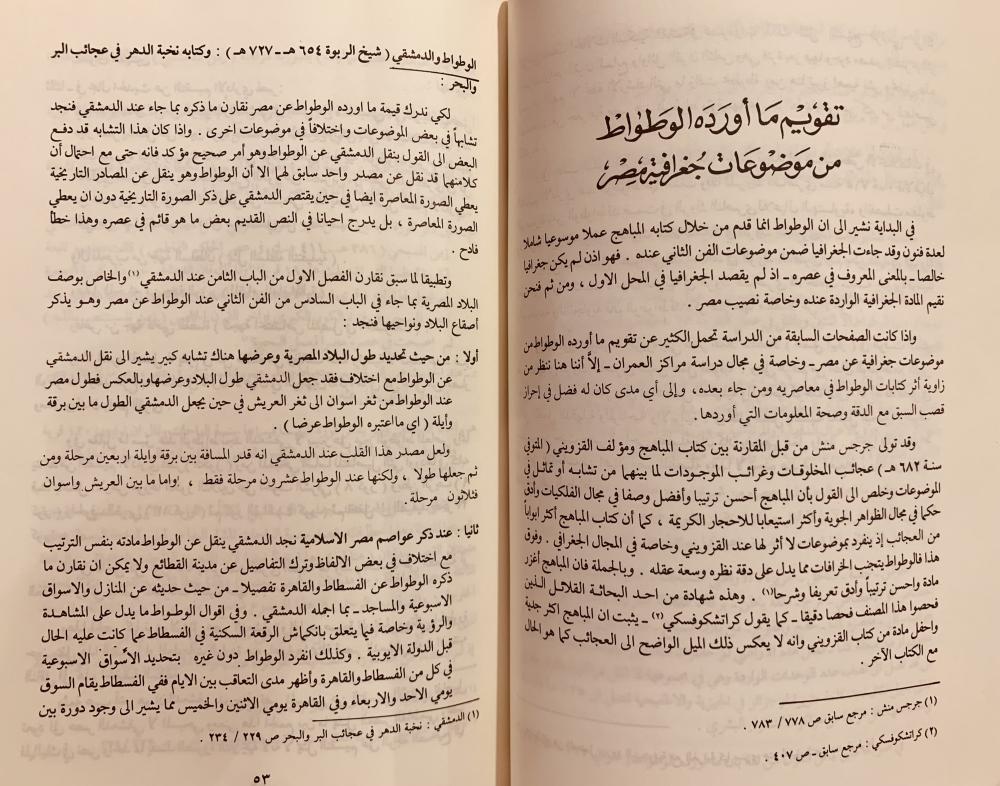 تقويم ما أورده الوطواط
من موضوعات جغرافية مصر
في البداية نشير الى ان الوطواط انما قدم من خلال كتابه المباهج عملا موسوعيا شاملا
لعدة فنون وقد جاءت الجغرافيا ضمن موضوعات الفن الثاني عنده . فهو اذن لم يكن جغرافيا
خالصا ـ بالمعنى المعروف في عصره ـ اذ لم يقصد الجغرافيا في المحل الاول ، ومن ثم فنحن
نقيم المادة الجغرافية الواردة عنده وخاصة نصيب مصر .
واذا كانت الصفحات السابقة من الدراسة تحمل الكثير عن تقويم ما أورده الوطواط من
موضوعات جغرافية عن مصر ـ وخاصة في مجال دراسة مراكز العمران ـ إلاَّ أننا هنا ننظر من
زاوية أثر كتابات الوطواط في معاصريه ومن جاء بعده ، وإلى أي مدى كان له فضل في إحراز
قصب السبق مع الدقة وصحة المعلومات التي أوردها .
وقد تولى جرجس منش من قبل المقارنة بين كتاب المباهج ومؤلف القزويني (المتوفي
سنة ٦٨٢ هـ) عجائب المخلوقات وغرائب الموجودات لما بينهما من تشابه أو تماثل في
الموضوعات وخلص الى القول بأن المباهج أحسن ترتيبا وأفضل وصفا في مجال الفلكيات وأدق
حكما في مجال الظواهر الجوية وأكثر استيعابا للاحجار الكريمة ، كما أن كتاب المباهج أكثر ابواباً
من العجائب إذ ينفرد بموضوعات لا أثر لها عند القزويني وخاصة في المجال الجغرافي . وفوق
هذا فالوطواط يتجنب الخرافات مما يدل على دقة نظره وسعة عقله . وبالجملة فان المباهج أغزر
مادة واحسن ترتيباً وأدق تعريفا وشرحا(١) . وهذه شهادة من احد البحاثة القلائل الذين
فحصوا هذا المصنف فحصا دقيقا ـ كما يقول كراتشكوفسكي(٢) ـ يثبت ان المباهج اكثر جدية
واحفل مادة من كتاب القزويني وانه لا يعكس ذلك الميل الواضح الى العجائب كما هو الحال
مع الكتاب الآخر .
(١) جرجس منش : مرجع سابق ص ٧٧٨ / ٧٨٣ .
(٢) كراتشكوفسكي : مرجع سابق ـ ص ٤٠٧ .
الوطواط والدمشقي ( شيخ الربوة ٦٥٤ هـ ـ ٧٢٧ هـ ) : وكتابه نخبة الدهر في عجائب البر
والبحر :
لكي ندرك قيمة ما اورده الوطواط عن مصر نقارن ما ذكره بما جاء عند الدمشقي فنجد
تشابهاً في بعض الموضوعات واختلافاً في موضوعات اخرى . واذا كان هذا التشابه قد دفع
البعض الى القول بنقل الدمشقي عن الوطواط وهو أمر صحيح مؤكد فانه حتى مع احتمال أن
كلامهما قد نقل عن مصدر واحد سابق لهما الا أن الوطواط وهو ينقل عن المصادر التاريخية
يعطي الصورة المعاصرة ايضا في حين يقتصر الدمشقي على ذكر الصورة التاريخية دون ان يعطي
الصورة المعاصرة ، بل يدرج احيانا في النص القديم بعض ما هو قائم في عصره وهذا خطأ
فادح .
وتطبيقا لما سبق نقارن الفصل الاول من الباب الثامن عند الدمشقي (١) والخاص بوصف
البلاد المصرية بما جاء في الباب السادس من الفن الثاني عند الوطواط عن مصر وهو يذكر
أصقاع البلاد ونواحيها فنجد :
أولا : من حيث تحديد طول البلاد المصرية وعرضها هناك تشابه كبير يشير الى نقل الدمشقي
عن الوطواط مع اختلاف فقد جعل الدمشقي طول البلاد وعرضها وبالعكس فطول مصر
عند الوطواط من ثغر اسوان الى ثغر العريش في حين يجعل الدمشقي الطول ما بين برقة
وأيلة ( اي ما اعتبره الوطواط عرضا ) .
ولعل مصدر هذا القلب عند الدمشقي انه قدر المسافة بين برقة وايلة اربعين مرحلة ومن
ثم جعلها طولا ، ولكنها عند الوطواط عشرون مرحلة فقط ، واما ما بين العريش واسوان
فثلاثون مرحلة .
ثانيا : عند ذكر عواصم مصر الاسلامية نجد الدمشقي ينقل عن الوطواط مادته بنفس الترتيب
مع اختلاف في بعض الالفاظ وترك التفاصيل عن مدينة القطائع ولا يمكن ان نقارن ما
ذكره الوطواط عن الفسطاط والقاهرة تفصيلا ـ من حيث حديثه عن المنازل والاسواق
الاسبوعية والمساجد ـ بما اجمله الدمشقي . وفي اقوال الوطواط ما يدل على المشاهدة
والرؤية وخاصة فيما يتعلق بانكماش الرقعة السكنية في الفسطاط عما كانت عليه الحال
قبل الدولة الايوبية . وكذلك انفرد الوطواط دون غيره بتحديد الأسواق الاسبوعية
في كل من الفسطاط والقاهرة وأظهر مدى التعاقب بين الايام ففي الفسطاط يقام السوق
يومي الاحد والاربعاء وفي القاهرة يومي الاثنين والخميس مما يشير الى وجود دورة بين
(١) الدمشقي : نخبة الدهر في عجائب البر والبحر ص ٢٢٩ / ٢٣٤ .
٥٣